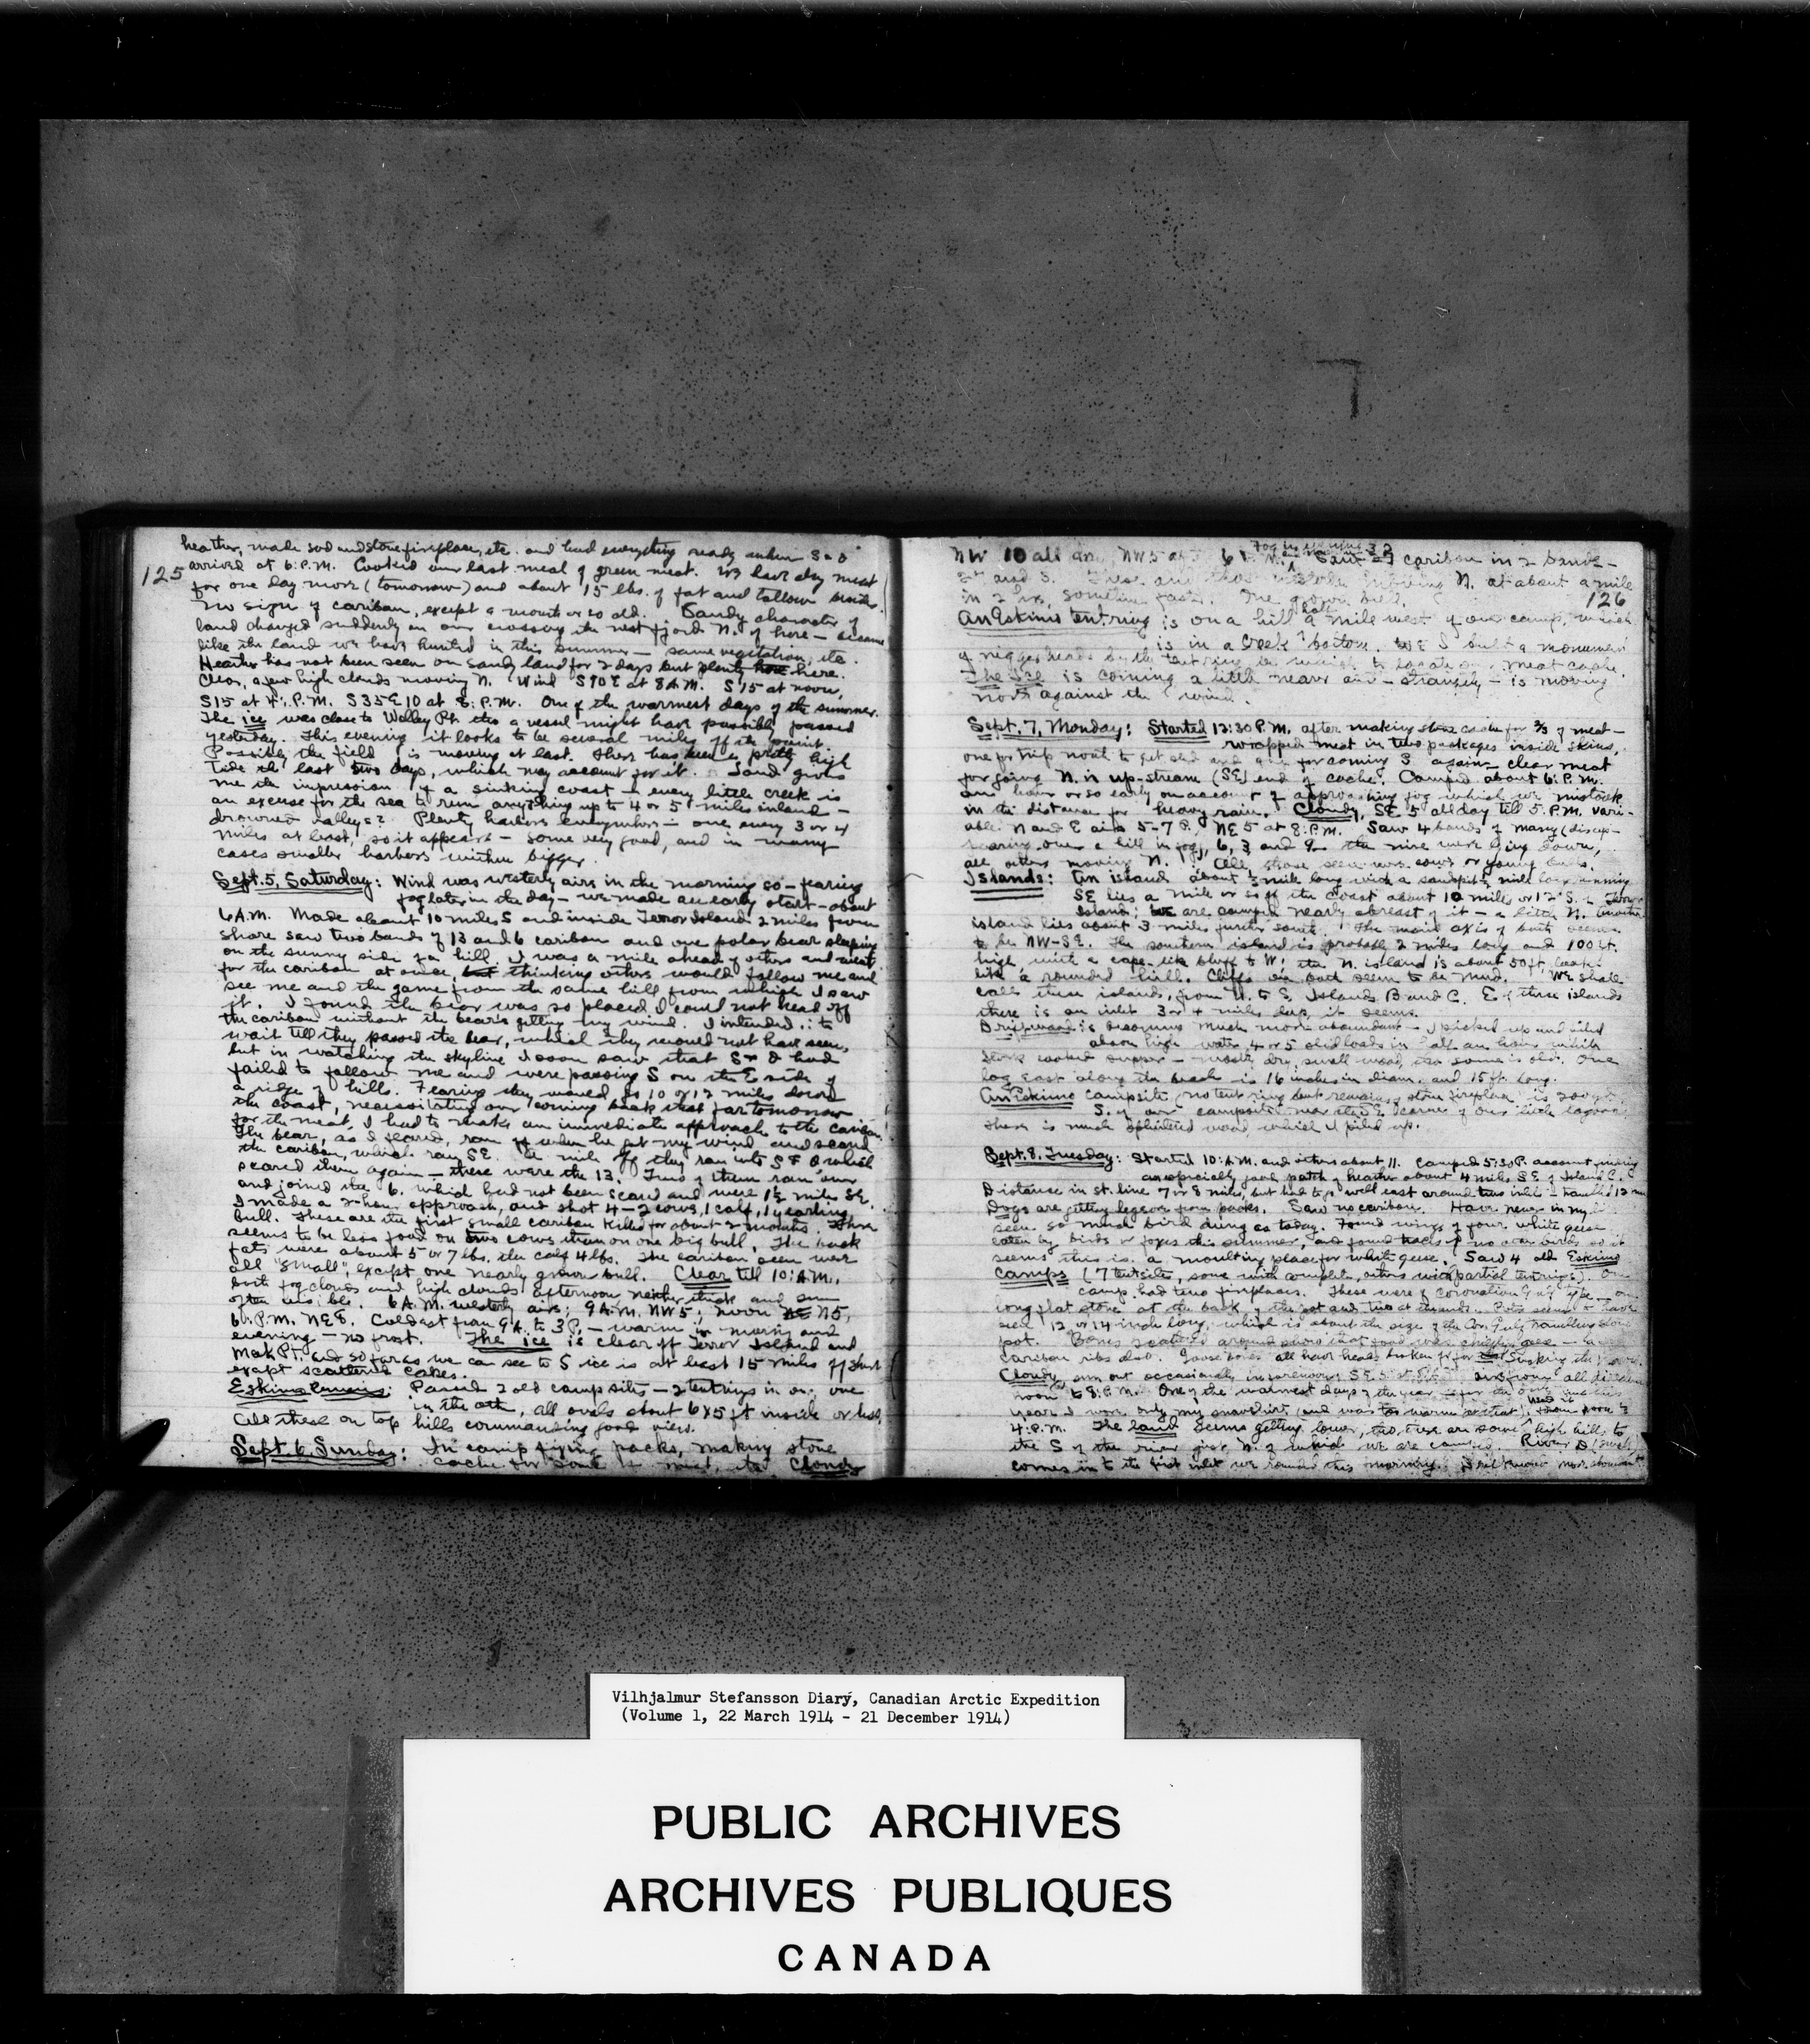 heather, made sod and stone fireplace, etc. and had everything ready when S & O
125 arrived at 6: P.M. Cooked our last meal of green meat. We have dry meat
for one day more (tomorrow) and about 15 lbs. of fat and tallow besides.
No sign of caribou, except a month or so old. Sandy character of
land changed suddenly on our crossing the next fjord N. of here – became
like the land we have hunted in this summer – same vegetation, etc.
Heather has not been seen on sandy land for 2 days but plenty here.
Clear, a few high clouds moving N. Wind S10E at 8 A.M. S15 at noon,
S15 at 4: P.M. S35E10 at 8: P.M. One of the warmest days of the summer.
The ice was close to Walley Pt. tho a vessel might have possibly passed
yesterday. This evening it looks to be several miles off the point.
Possibly the field is moving at last. There has been a pretty high
tide the last two days, which may account for it. Land gives
me the impression of a sinking coast – every little creek is
an excuse for the sea to run anything up to 4 or 5 miles inland –
drowned valleys? Plenty harbors everywhere – one every 3 or 4
miles at least, so it appears – some very good, and in many
cases smaller harbors within bigger.
Sept. 5, Saturday: Wind was westerly airs in the morning so – fearing
fog later in the day – we made an early start – about
6 A.M. Made about 10 miles S and inside Terror Island 2 miles from
shore saw two bands of 13 and 6 caribou and one polar bear sleeping
on the sunny side of a hill. I was a mile ahead of others and went
for the caribou at once, thinking others would follow me and
see me and the game from the same hill from which I saw
it. I found the bear was so placed I could not head off
the caribou without the bear's getting my wind. I intended to
wait till they passed the bear, which they would not have seen,
but in watching the skyline I soon saw that S & O had
failed to follow me and were passing S on the E side of
a ridge of hills. Fearing they would go 10 or 12 miles down
the coast, necessitating our coming back that far tomorrow
for the meat, I had to make an immediate approach to the caribou.
The bear, as I feared, ran off when he got my wind and scared
the caribou, which ran SE. A mile off they ran into S & O which
scared them again – these were the 13. Two of them ran over
and joined the 6. which had not been scared and were 1½ miles SE.
I made a 2-hour approach, and shot 4 – 2 cows, 1 calf, 1 yearling
bull. These are the first small caribou killed for about 2 months. There
seems to be less food on two cows than on one big bull. The back
fats were about 5 or 7 lbs. the calf 4 lbs. The caribou seen were
all "small", except one nearly grown bull. Clear till 10: A.M.,
both fog clouds and high clouds afternoon neither thick and sun
often visible. 6 A.M. westerly airs; 9 A.M. NW5; noon N5,
6: P.M. NE8. Coldest from 9 A. to 3 P. – warm in morning and
evening – no frost. The ice is clear off Terror Island and
Pt. and so far as we can see to S ice is at least 15 miles off shore
except scattered cakes.
Eskimo : Passed 2 old camp sites – 2 tentrings in one, one
in the other, all ovals about 6x5 ft inside or less,
All these on top hills commanding good view.
Sept. 6, Sunday: In camp drying packs, making stone
cache for some of meat, etc. Cloudy
NW 10 all day, NW5 at 6 P.M. Fog in evening Saw 27 caribou in 2 bands –
24 and 3. moving N. at about a mile
in 2 hrs, sometimes faster. One grown bull. 126
An Eskimo tentring is on a hill half a mile west of our camp, which
is in a creek bottom. I built a monument
of niggerheads by the tentring by which to locate our meat cache.
The Ice is coming a little nearer and – strangely – is moving
north against the wind.
Sept. 7, Monday: Started 12:30 P.M. after making stone cache for ⅔ of meat –
wrapped meat in two packages inside skins,
one for trip north to get sled and one for coming S. again – clear meat
for going N. in up-stream (SE) end of cache. Camped about 6: P.M.
an hour or so early on account of approaching fog which we mistook
in the distance for heavy rain. Cloudy, SE 5 all day till 5: P.M. vari-
able N and E airs 5-7 P., NE 5 at 8: P.M. Saw 4 bands of many (disap-
pearing over a hill in fog), 6, 3 and 9 – the nine were lying down,
all others moving N. All those seen were cows or young bulls.
Islands: An island about ½ mile long with a sandspit ½ mile long running
SE lies a mile or so off the coast about 10 miles or 12 S. of Terror
Island; we are camped nearly abreast of it – a little N. Another
island lies about 3 miles further south. The main axis of both seems
to be NW-SE. The southern island is probably 2 miles long and 100 ft.
high with a cape-like bluff to W; the N. island is about 50 ft, looks
like a rounded hill. Cliffs on both seem to be mud. We shall
call these islands, from N. to S, Islands B and C. E of these islands
there is an inlet 3 or 4 miles deep, it seems.
Driftwood is becoming much more abundant – I picked up and piled
above high water 4 or 5 sledloads in half an hour while
Stork cooked supper – mostly dry, small wood, tho some is old. One
log east along the beach is 16 inches in diam. and 15 ft. long.
An Eskimo campsite, no tent ring but remains of stone fireplace is 200 yds.
S. of our campsite near the SE corner of our little lagoon.
There is much splintered wood, which I piled up.
Sept. 8, Tuesday: Started 10: A.M. and others about 11. Camped 5:30 P. account finding
an especially good patch of heather about 4 miles SE of Island C.
Distance in st. line 7 or 8 miles, but had to go well east around two inlets – travelled 12 mi
Dogs are getting legsore from packs. Saw no caribou. Have never in my life
seen so much bird dung as today. Found wings of four white geese
eaten by birds or foxes this summer, and found tracks of no other birds so it
seems this is a moulting place for white geese. Saw 4 old Eskimo
camps (7 tent sites, some with complete, others with partial tentrings). One
camp had two fireplaces. These were of Coronation Gulf type – one
long flat stone at the back of the pot and two at the ends. Pots seem to have
been 12 or 14 inch long, which is about the size of the Cor. Gulf travelling stone
pot. Bones scattered around show that food was chiefly geese –
caribou ribs also. Goose bones all have heads broken off for sucking the marrow.
Cloudy, sun out occasionally in forenoon, SE 5 airs from all directions
noon to 8: P.M. One of the warmest days of the year –
year I wore only my snowshirt (and was too warm in that) from noon to
4: P.M. The land seems getting lower, tho there are some high hills to
the S of the river just N. of which we are camped. River D (small)
comes in to the first inlet we rounded this morning. Driftwood more abundant
Vilhjalmur Stefansson Diary, Canadian Arctic Expedition
(Volume 1, 22 March 1914 - 21 December 1914)
PUBLIC ARCHIVES
ARCHIVES PUBLIQUES
CANADA